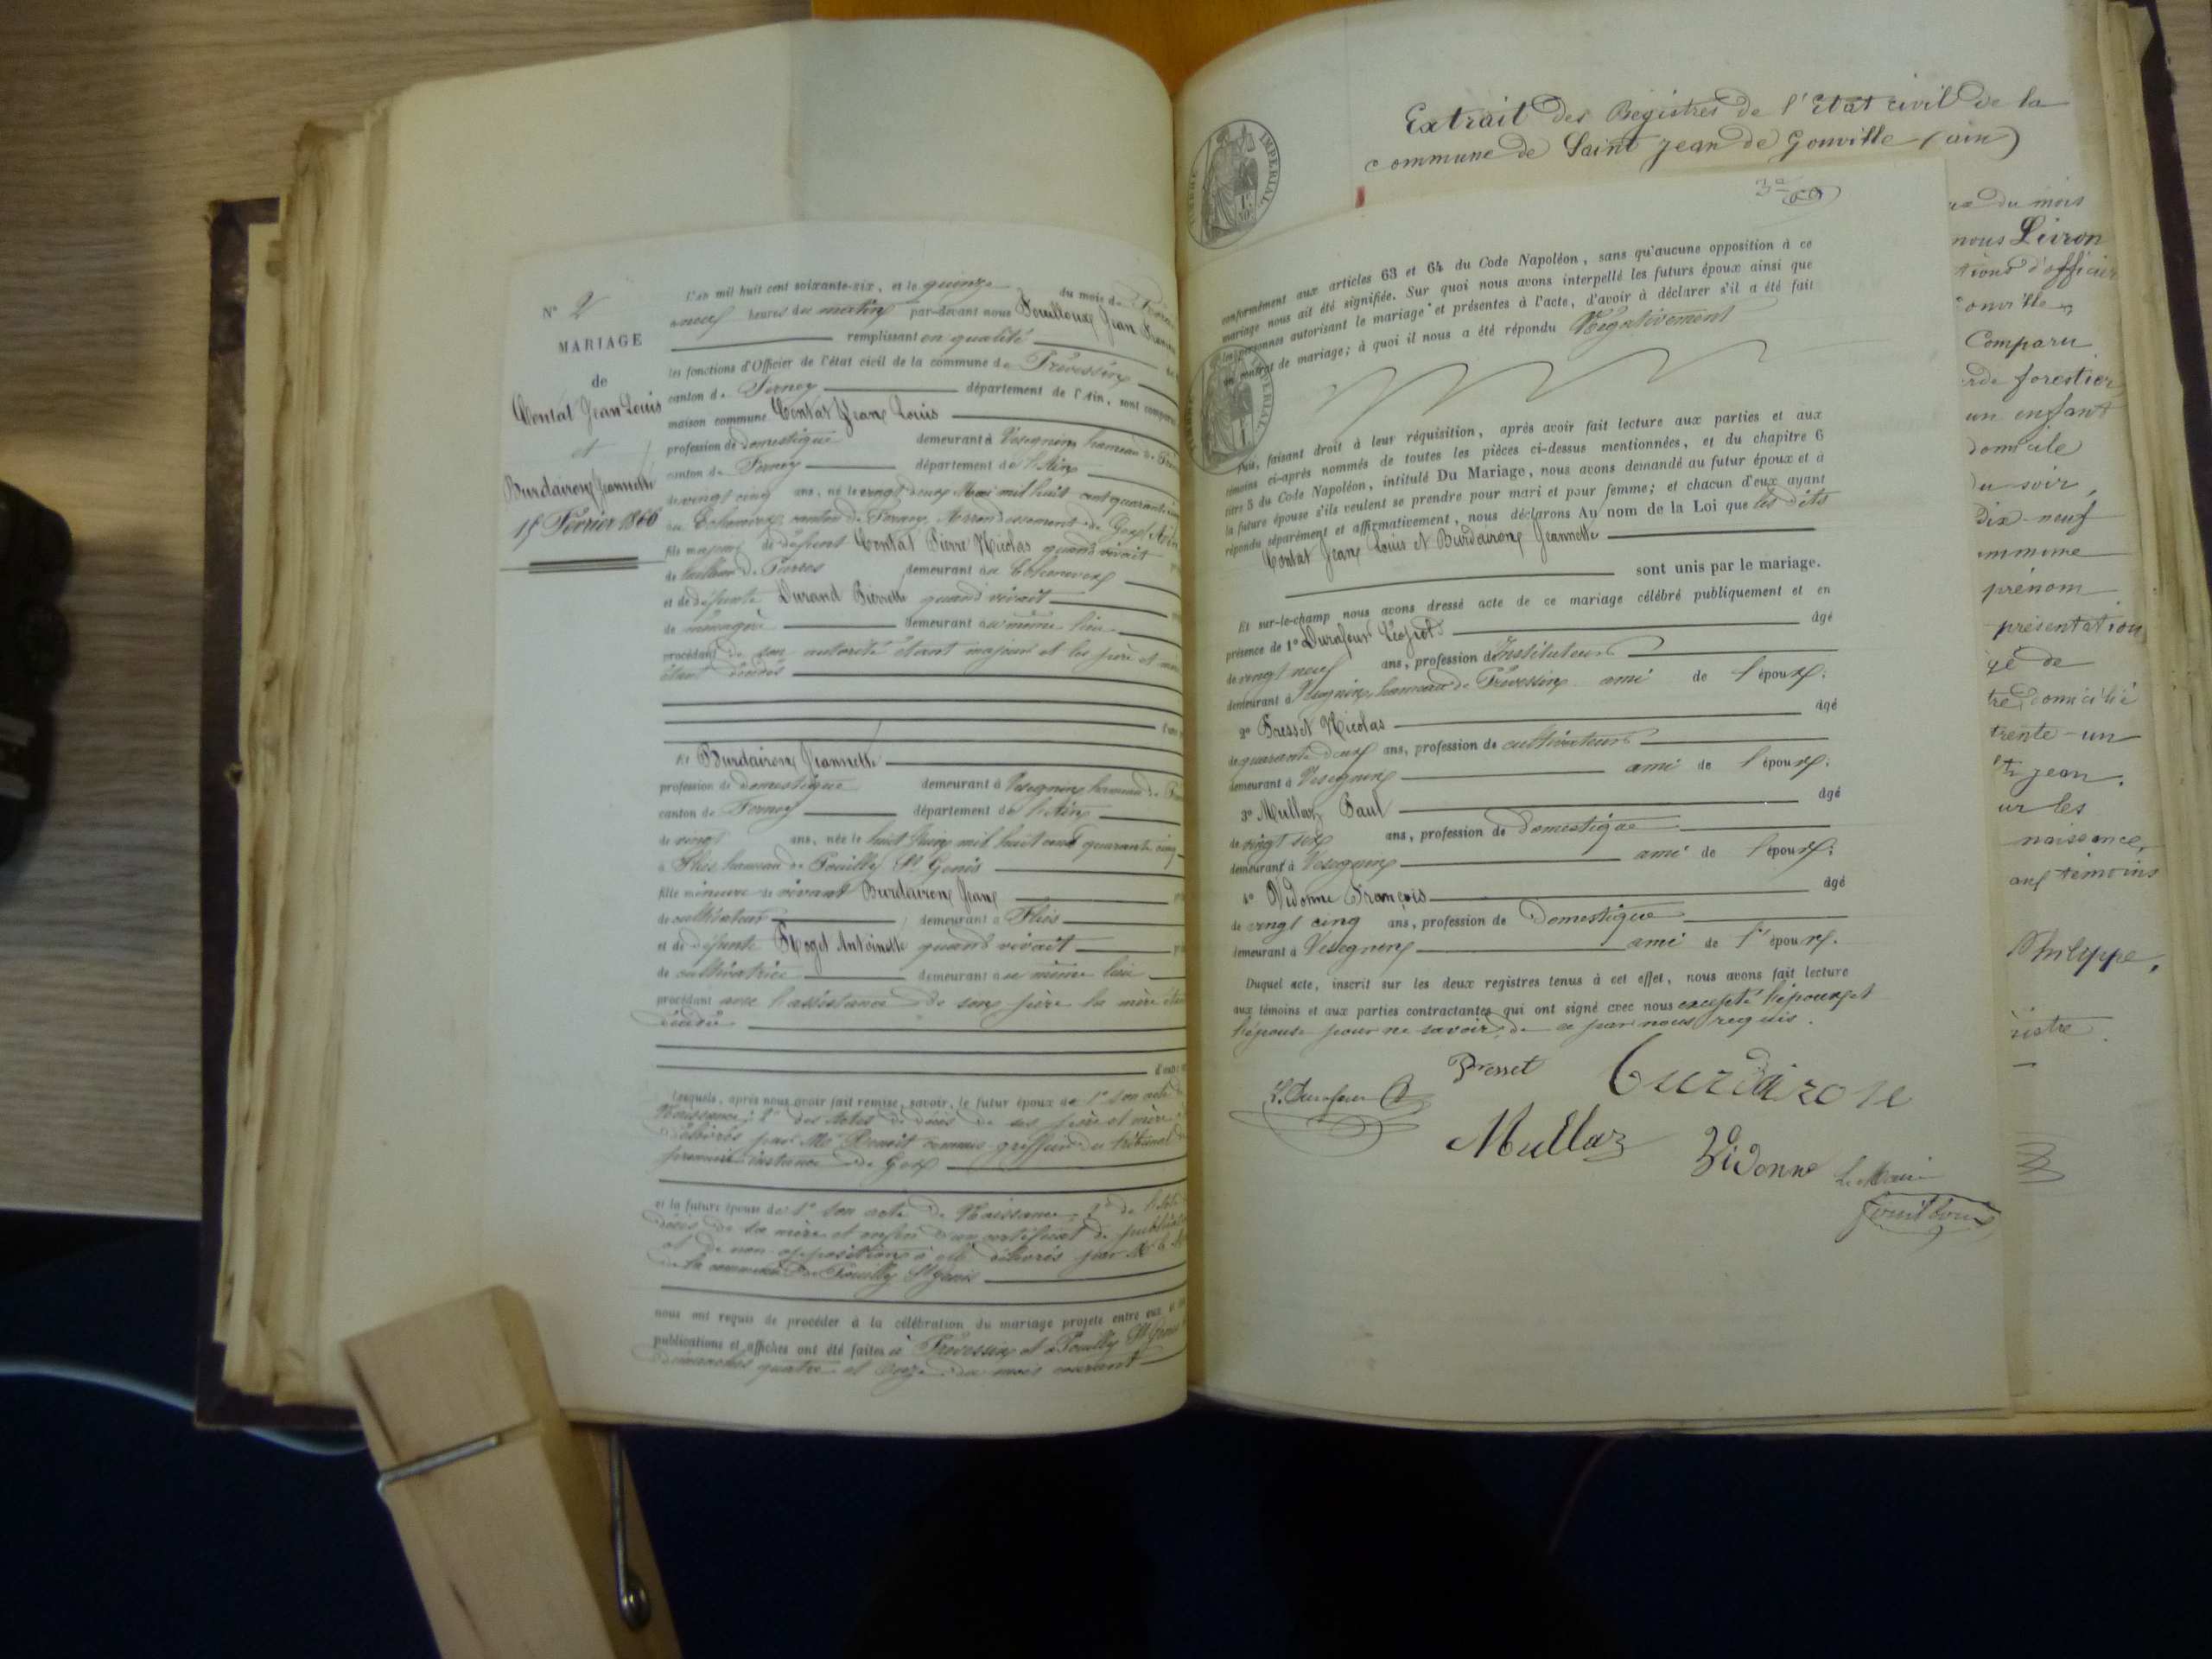 N° 2
MARIAGE
de
Contat Jean Louis
et
Burdairon Jeannette
15 Février 1866
L'an mil huit cent soixante-six, et le quinze du mois de
à neuf heures du matin par-devant nous Fouilloux Jean
remplissant en qualité
les fonctions d'Officier de l'état civil de la commune de Prévessin
canton de Ferney département de l'Ain, sont comparus
maison commune Contat Jean Louis
profession de domestique demeurant à Vesegnin hameau de
canton de Ferney département de l'Ain
de vingt cinq ans, né le vingt deux Mai mil huit cent quarante
au Echenevex canton de Ferney, Arrondissement de Gex, Ain
fils majeur de défunt Contat Pierre Nicolas quand vivait
de tailleur de Pierres demeurant à Echenevex
et de défunte Durand Pierrette quand vivait
de ménagère demeurant au même lieu
procédant de son autorité étant majeur et les père et mère
étant décédés
Et Burdairon Jeannette
profession de domestique demeurant à Vesegnin hameau de
canton de Ferney département de l'Ain
de vingt ans, née le huit Juin mil huit cent quarante cinq
à Flies hameau de Pouilly St Genis
fille mineure de vivant Burdairon Jean
de cultivateur demeurant à Flies
et de défunte Roget Antoinette quand vivait
de cultivatrice demeurant au même lieu
procédant avec l'assistance de son père la mère étant
décédée
Lesquels, après nous avoir fait remise, savoir, le futur époux de 1° son acte de
Naissance; 2° des Actes de décès de ses père et mère
délivrés par Me Benoit commis greffier du tribunal de
première instance de Gex
et la future épouse de 1° son acte de Naissance, 2° de l'acte de
décès de sa mère et enfin d'un certificat de publication
et de non opposition à elle délivrés par Mr le
de la commune de Pouilly St Genis
nous ont requis de procéder à la célébration du mariage projeté entre eux et
publications et affiches ont été faites à Prévessin et à Pouilly St Genis
dimanches quatre et onze du mois courant
Extrait des Registres de l'Etat civil de la
commune de Saint Jean de Gonville (ain)
TIMBRE IMPERIAL
conformément aux articles 63 et 64 du Code Napoléon, sans qu'aucune opposition à ce
mariage nous ait été signifiée. Sur quoi nous avons interpellé les futurs époux ainsi que
les personnes autorisant le mariage et présentes à l'acte, d'avoir à déclarer s'il a été fait
un contrat de mariage; à quoi il nous a été répondu Négativement
Puis, faisant droit à leur réquisition, après avoir fait lecture aux parties et aux
témoins ci-après nommés de toutes les pièces ci-dessus mentionnées, et du chapitre 6
titre 5 du Code Napoléon, intitulé Du Mariage, nous avons demandé au futur époux et à
la future épouse s'ils veulent se prendre pour mari et pour femme; et chacun d'eux ayant
répondu séparément et affirmativement, nous déclarons Au nom de la Loi que les dits
Contat Jean Louis et Burdairon Jeannette
sont unis par le mariage.
Et sur-le-champ nous avons dressé acte de ce mariage célébré publiquement et en
présence de 1° Durafour Léopold âgé
de vingt neuf ans, profession d'Instituteur
demeurant à Vesegnin, hameau de Prévessin ami de l'époux;
2° Presset Nicolas âgé
de quarante deux ans, profession de cultivateur
demeurant à Vesegnin ami de l'époux;
3° Mullaz Paul âgé
de vingt six ans, profession de domestique
demeurant à Vesegnin ami de l'époux;
4° Vidonne François âgé
de vingt cinq ans, profession de Domestique
demeurant à Vesegnin ami de l'époux.
Duquel acte, inscrit sur les deux registres tenus à cet effet, nous avons fait lecture
aux témoins et aux parties contractantes qui ont signé avec nous excepté l'époux et
l'épouse pour ne savoir, de ce par nous requis.
Presset Burdairon
L. Durafour
Mullaz Vidonne Le Maire
Fouilloux
du mois
nous Livron
tions d'officier
onville
Comparu
rde forestier
un enfant
domicile
du soir,
dix-neuf
ommune
prénom
présentation
gé de
tre domicilié
trente-un
St Jean.
ur les
naissance,
aux témoins
Philippe,
istre.